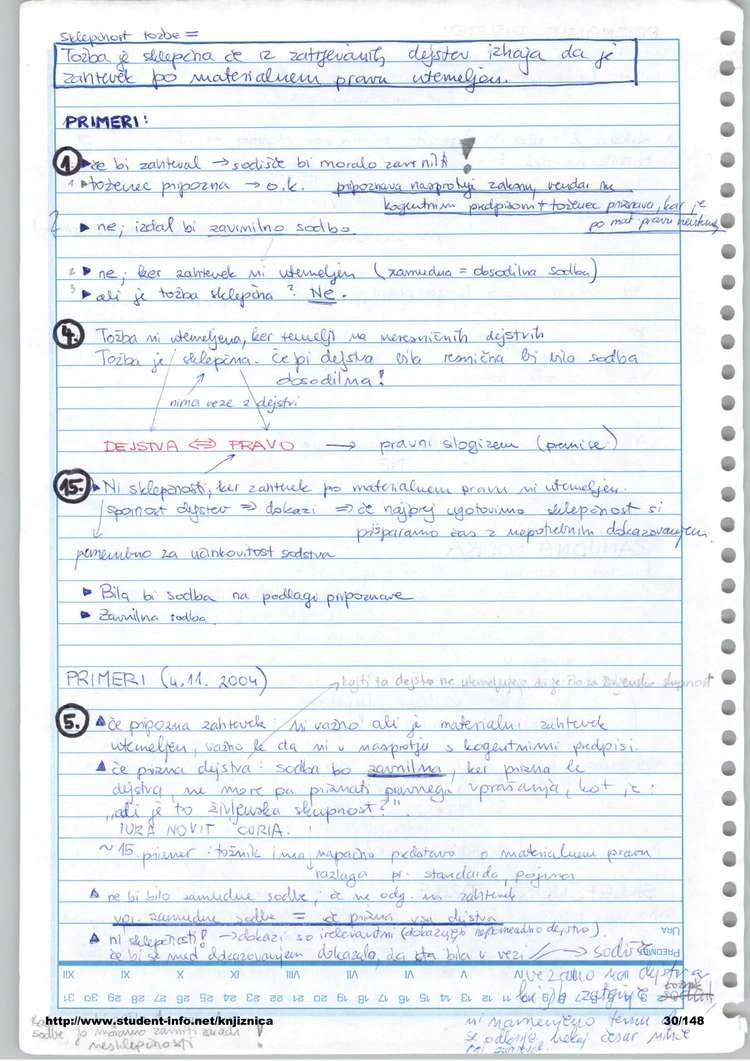 Sklepčnost tožbe =
Tožba je sklepčna če iz zatrjevanih dejstev izhaja da je
zahtevek po materialnem pravu utemeljen.
PRIMERI:
1. ▶ če bi zahteval → sodišče bi moralo zavrniti !
1 ▶ toženec pripozna → o.k. pripoznava nasprotuje zakonu, vendar ne
kogentnim predpisom + toženec priznava, kar je
po mat. pravu
▶ ne; izdal bi zavrnilno sodbo
2 ▶ ne; ker zahtevek ni utemeljen (zamudna = dosodilna sodba)
3 ▶ ali je tožba sklepčna? Ne.
4. Tožba ni utemeljena, ker temelji na neresničnih dejstvih
Tožba je sklepčna. Če bi dejstva bila resnična bi bila sodba
dosodilna!
nima veze z dejstvi
DEJSTVA ⇔ PRAVO → pravni silogizem (premise)
15. ▶ Ni sklepčnosti, ker zahtevek po materialnem pravu ni utemeljen.
spornost dejstev ⇒ dokazi ⇒ če najprej ugotovimo sklepčnost si
prišparamo čas z nepotrebnim dokazovanjem.
pomembno za učinkovitost sodstva
▶ Bila bi sodba na podlagi pripoznave
▶ Zavrnilna sodba
PRIMERI (4.11. 2004)
→ kajti ta dejstva ne utemeljujejo da je šlo za življensko skupnost
5. ▲ če pripozna zahtevek ni važno ali je materialni zahtevek
utemeljen, važno le da ni v nasprotju s kogentnimi predpisi.
▲ če prizna dejstva: sodba bo zavrnilna, ker prizna le
dejstva, ne more pa priznati pravnega vprašanja, kot je:
„ali je to življenska skupnost?".
IURA NOVIT CURIA.
~ 15 primer: tožnik ima napačno predstavo o materialnem pravu
razlaga pr. standarda pojma
▲ ne bi bilo zamudne sodbe, če ne odg. na zahtevek
vpr. zamudne sodbe = če prizna vsa dejstva
▲ ni sklepčnosti! → dokazi so irelevantni (dokazujejo nepomembno dejstvo).
če bi se med dokazovanjem dokazalo, da sta bila v vezi → sodišče
vezano na dejstva
URA
PREDMET
XII XI X IX VIII VII VI V IV
31 30 29 28 27 26 25 24 23 22 21 20 19 18 17 16 15 14 13 12 11
ni namenjeno temu
se odloča nekaj česar nihče
sodbe jo moramo zavrniti zaradi
nesklepčnosti
http://www.student-info.net/knjiznica
30/148